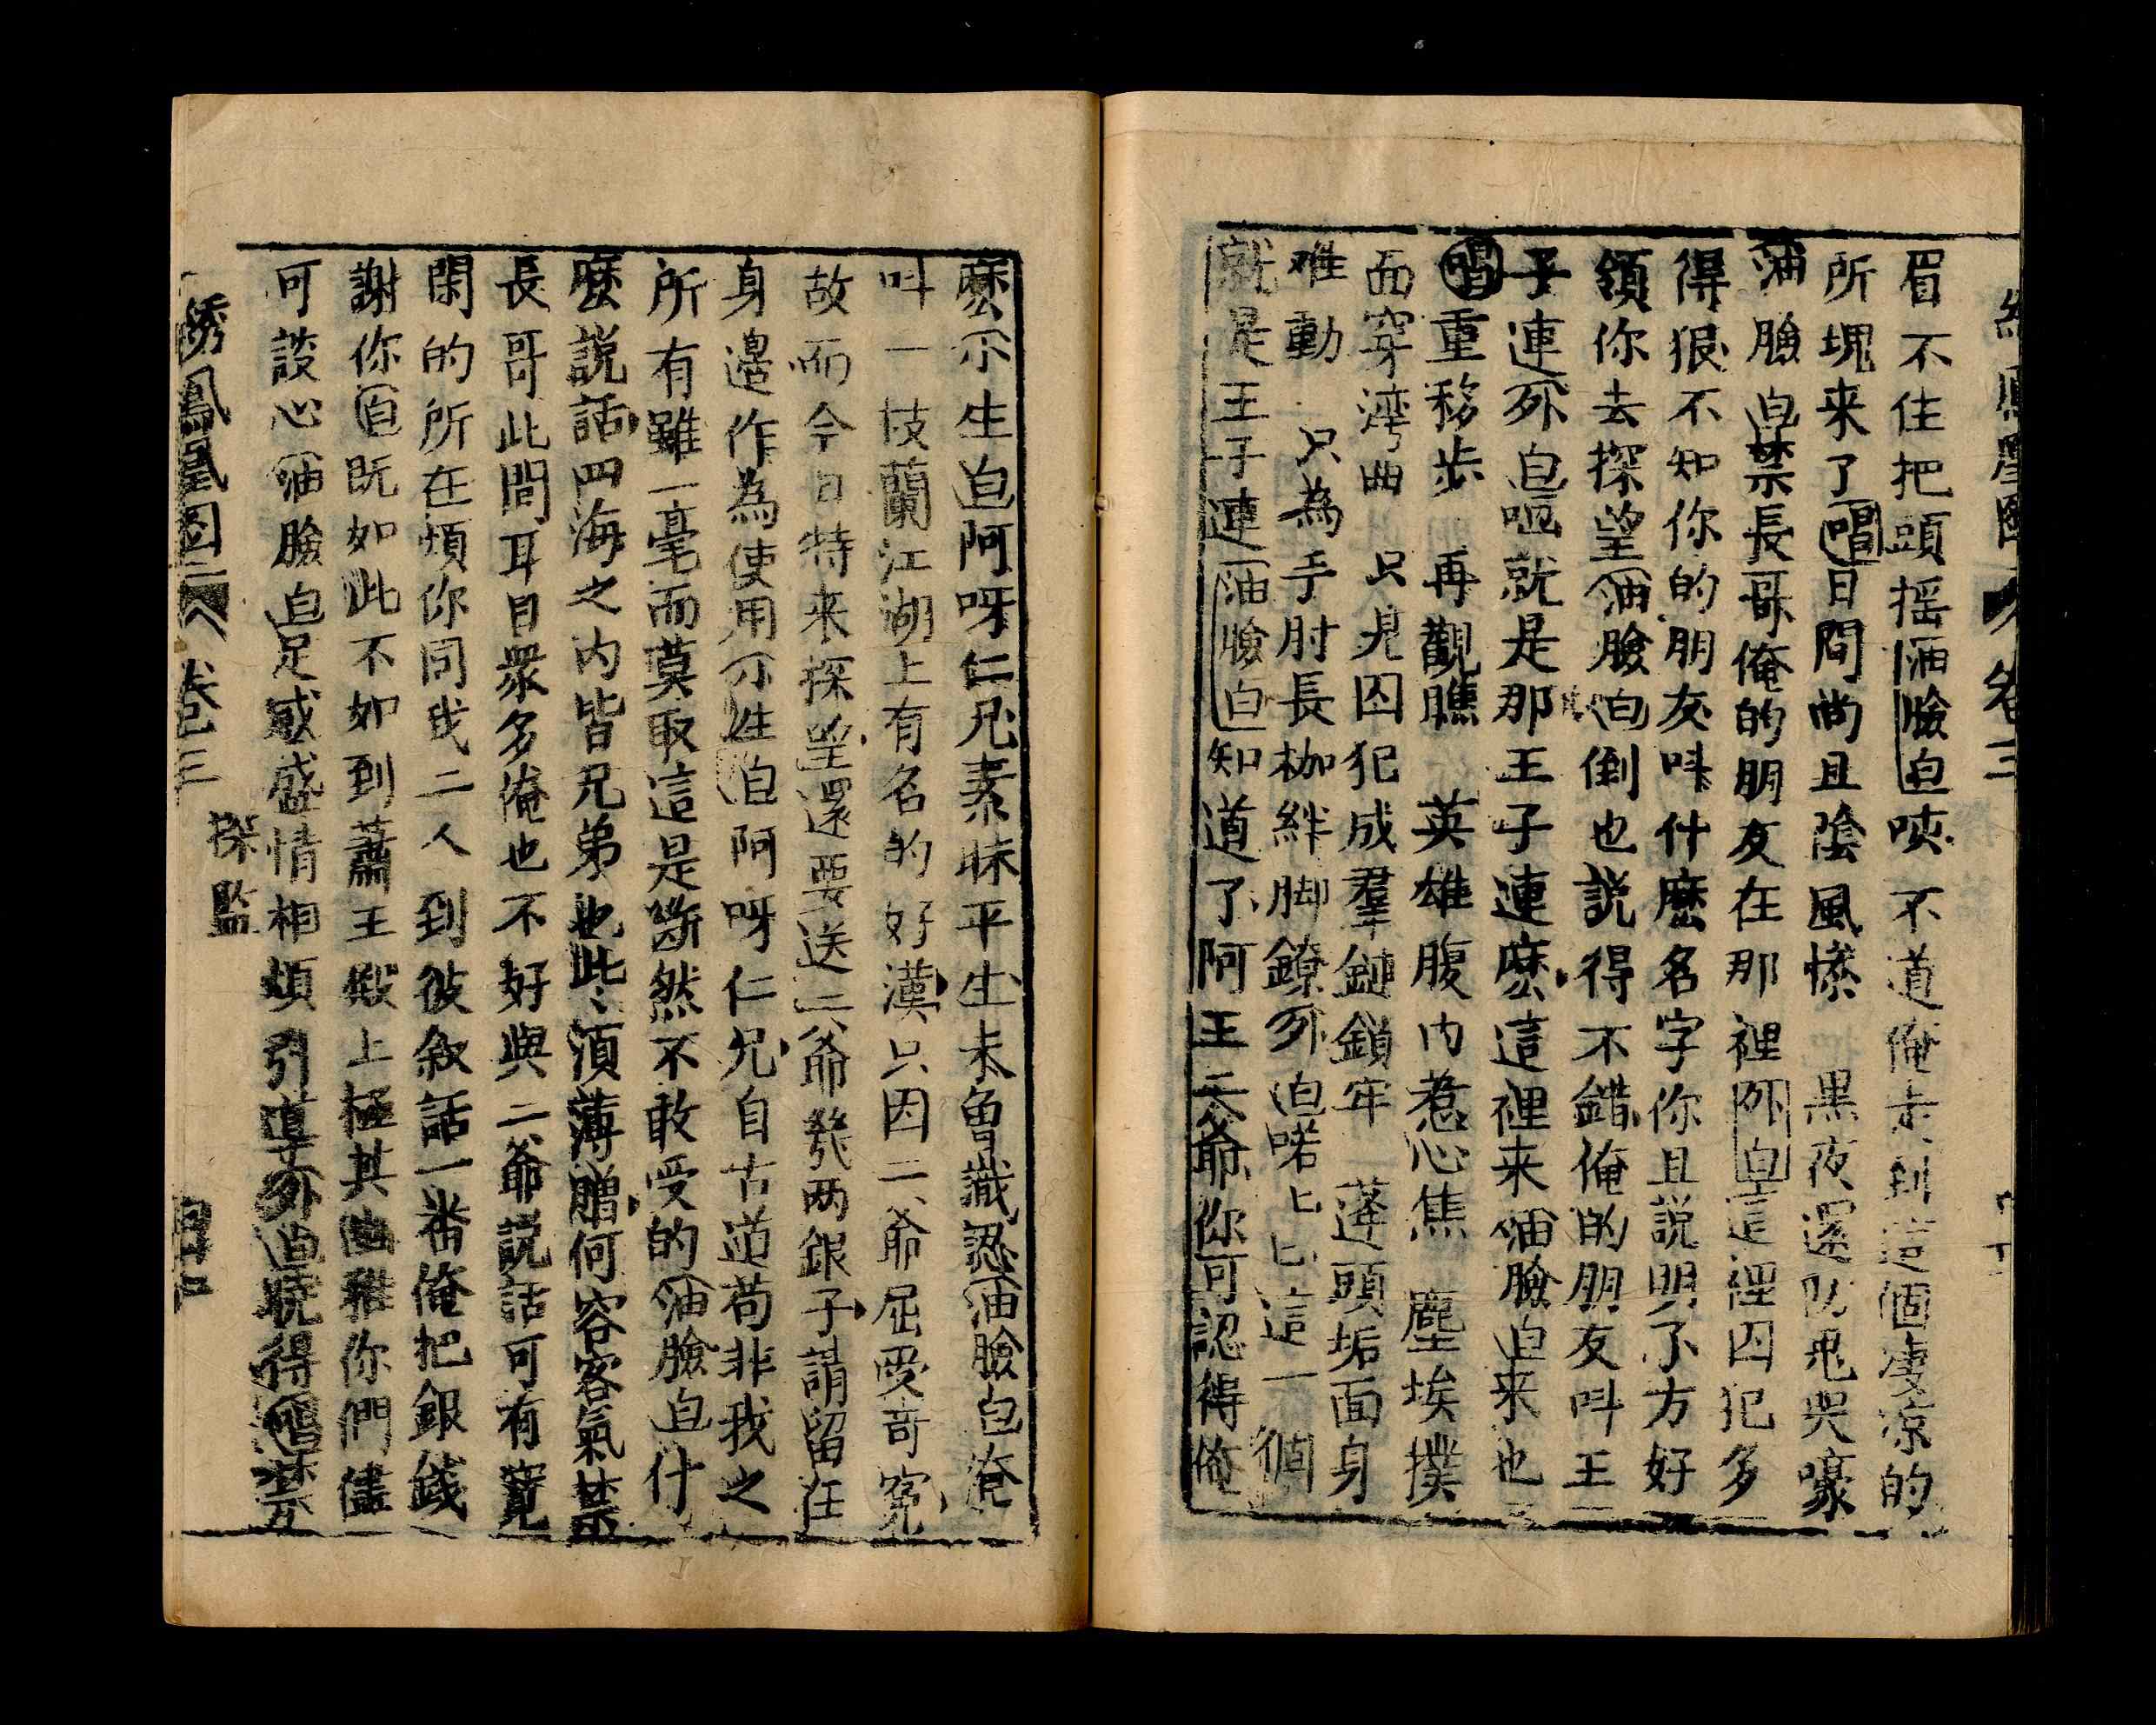 卷三
眉不住把頭摇油臉白唉不道俺走到這個凄凉的
所塊来了唱日間尚且陰風慘 黑夜還防鬼哭嚎
油臉白禁長哥俺的朋友在那裡外白這裡囚犯多
得狠不知你的朋友呌什麽名字你且説明了方好
領你去探望油臉白倒也説得不錯俺的朋友呌王二
子連外白嗯就是那王子連麽這裡来油臉白来也
唱重移步 再觀瞧 英雄腹内惹心焦 塵埃撲
面穿湾曲 只見囚犯成羣鏈鎖牢 蓬頭垢面身
难動 只為手肘長枷絆脚鐐外白喏匕匕這一個
就是王子連油臉白知道了阿王二爺你可認得俺
麽小生白阿呀仁兄素昧平生未曾識認油臉白俺
呌一枝蘭江湖上有名的好漢只因二爺屈受奇冤
故而今日特来探望還要送二爺幾两銀子請留在
身邊作為使用小生白阿呀仁兄自古道苟非我之
所有雖一毫而莫取這是斷然不敢受的油臉白什
麽説話四海之内皆兄弟也此須薄贈何容客氣禁
長哥此間耳目衆多俺也不好與二爺説話可有寛
閑的所在煩你同我二人到彼敘話一番俺把銀錢
謝你白既如此不如到蕭王殿上極其幽雅你們儘
可談心油臉白足感盛情相煩引導外白曉得唱禁
綉鳳凰圖 卷三 探監